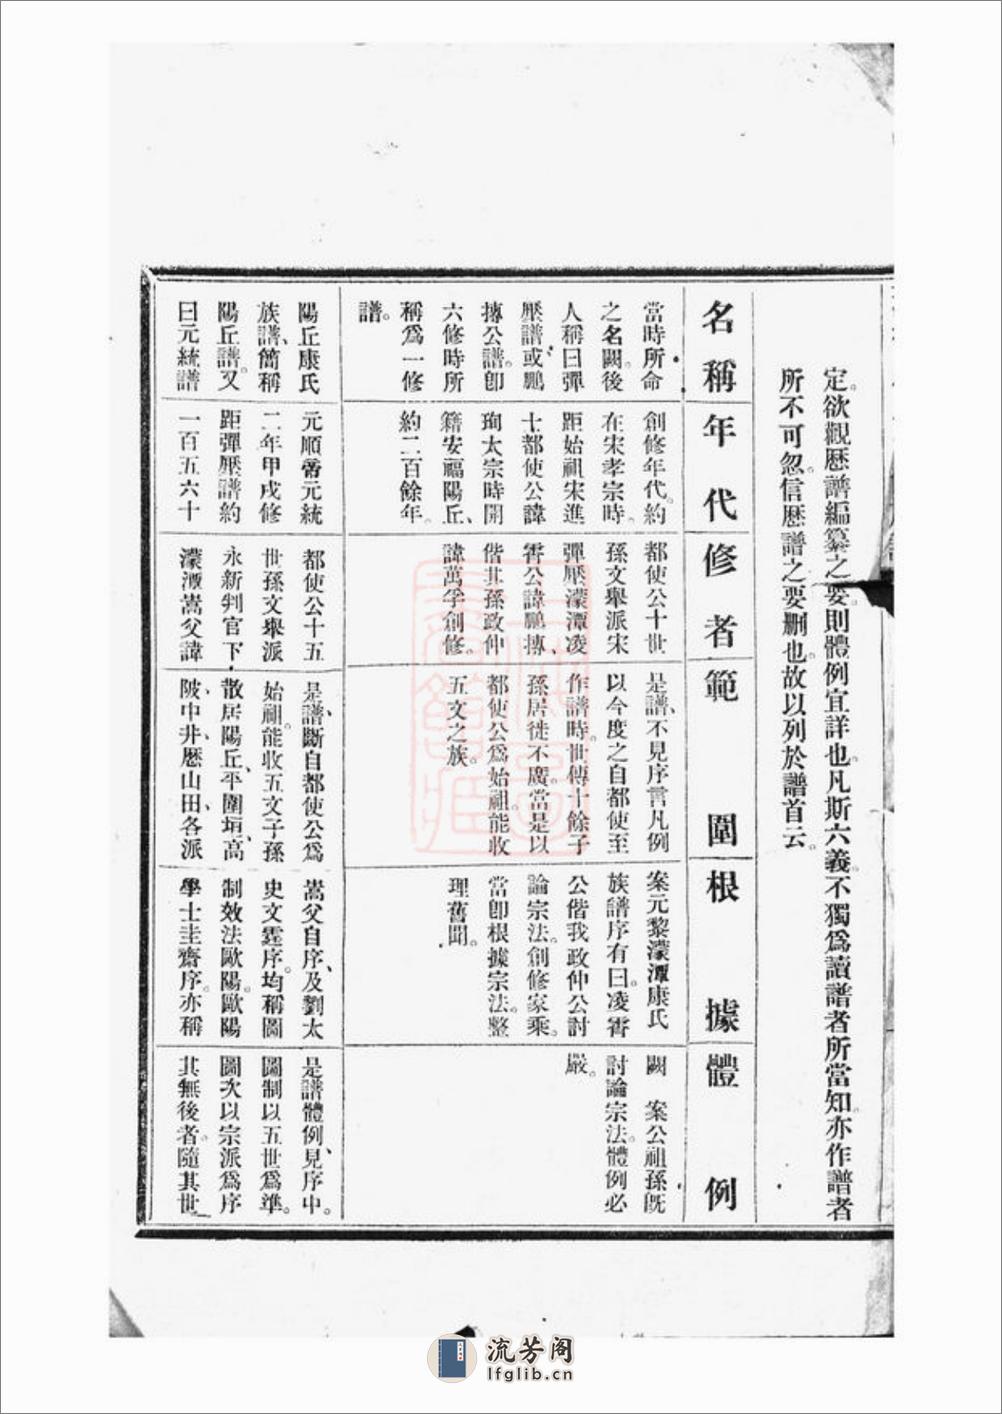 定。欲觀歷譜編纂之要。則體例宜詳也。凡斯六義。不獨爲讀譜者所當知。亦作譜者
所不可忽。信歷譜之要删也。故以列於譜首云。
名稱
年代
修者
範圍
根據
體例
當時所命
之名闕。後
人稱曰彈
壓譜或鵬
摶公譜。卽
六修時所
稱爲一修
譜。
創修年代。約
在宋孝宗時。
距始祖宋進
士都使公諱
珣太宗時開
籍安福陽丘、
約二百餘年。
都使公十世
孫文舉派宋
彈壓濛潭凌
霄公諱鵬摶、
偕其孫政仲
諱萬孚創修。
是譜、不見序言凡例
以今度之自都使至
作譜時。世傳十餘子
孫居徙不廣。當是以
都使公爲始祖。能收
五文之族。
案元黎濛潭康氏
族譜序有曰。凌霄
公偕我政仲公討
論宗法。創修家乘。
當卽根據宗法。整
理舊聞。
闕　案公祖孫旣
討論宗法。體例必
嚴。
陽丘康氏
族譜、簡稱
陽丘譜。又
曰元統譜
元順帝元統
二年甲戌修
距彈壓譜約
一百五六十
都使公十五
世孫文舉派
永新判官下
濛潭嵩父諱
是譜、斷自都使公爲
始祖。能收五文子孫
散居陽丘、平圍垣、高
陂、中井、歷山田各派
嵩父自序、及劉太
史文霆序。均稱圖
制效法歐陽。歐陽
學士圭齋序。亦稱
是譜體例、見序中。
圖制以五世爲準。
圖次以宗派爲序
其無後者。隨其世
流芳阁
lfglib.cn